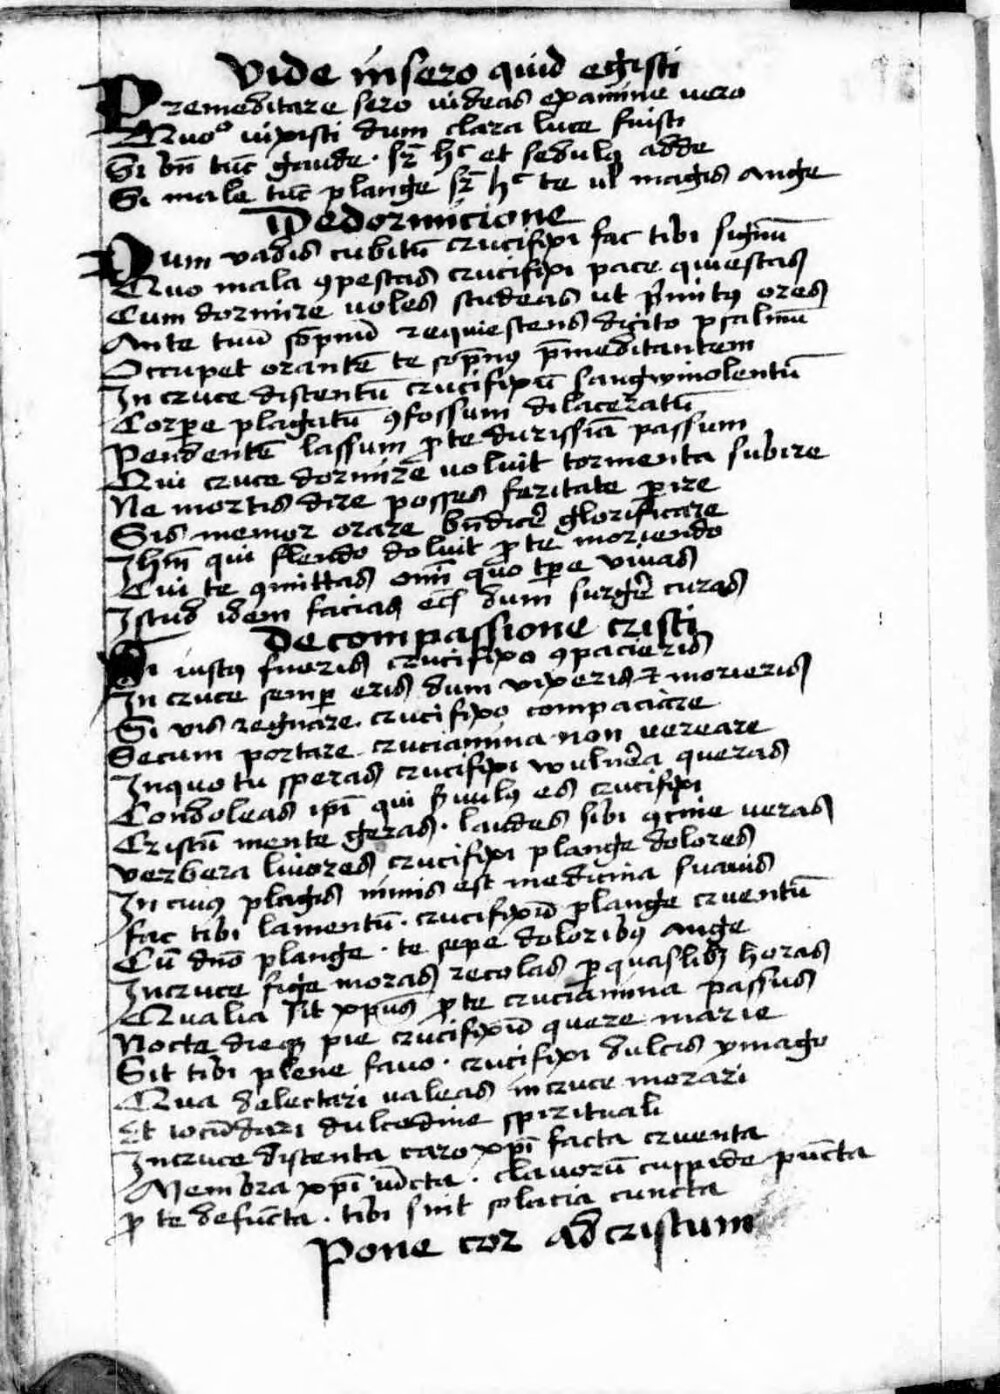 Vide in sero quid egisti
Premeditare sero videas examine vero
Quō vixisti dum clara luce fuisti
Si bn̄ tūc gaude · sꝫ hᶜ et sedulꝰ adde
Si male tūc plange sꝫ hᶜ te vl magis ange
De dormicione
Dum vadis cubitū crucifixi fac tibi signū
Quo mala ꝯpescas crucifixi pace quiescas
Cum dormire voles studeas ut p̄mitꝰ ores
Ante tuū sōpnū requiescens dicito psalmū
Occupet orantē te sōpnꝰ p̄meditantem
In cruce distentū crucifixū sangwinolentū
Corꝑe plagatū ꝯfossum dilaceratū
Pendentē lassum ꝓ te durissīa passum
Qui cruce dormire voluit tormenta subire
Ne mortis dire posses feritate ꝑire
Sis memor orare bn̄dicē glorificare
Jhm̄ qui flendo doluit ꝓ te moriendo
Cui te ꝯmittas om̄i quo tꝑe vivas
Istud idem facias dum surgē curas
De compassione cristi
Si iustꝰ fueris crucifixo ꝯpacieris
In cruce semꝑ eris dum vixeris et morieris
Si vis regnare · crucifixo compaciare
Secum portare cruciamina non vereare
In quo tu speras crucifixi wulnēa queras
Condoleas ip̄i qui s̄vulꝰ es crucifixi
Cristū mente geras · laudes sibi ꝯcine veras
Verbera livores crucifixi plange dolores
In cuiꝰ plagis nimis est medicina suavis
Fac tibi lamentū · crucifixū plange cruentū
Cū dn̄o plange · te sepe doloribꝰ ange
In cruce fige moras recolas ꝑ quaslibꝫ horas
Qualia sit xp̄us ꝓ te cruciamina passus
Nocte dieqꝫ pie crucifixū quere marie
Sit tibi plene favo · crucifixi dulcis ymago
Qua delectari valeas in cruce morari
Et iocūdari dulcedine spirituali
In cruce distenta caro xp̄i facta cruenta
Membra xp̄i iūcta · clavorū cuspide pūcta
ꝓ te defūcta · tibi sint solacia cuncta
Pone cor ad cristum